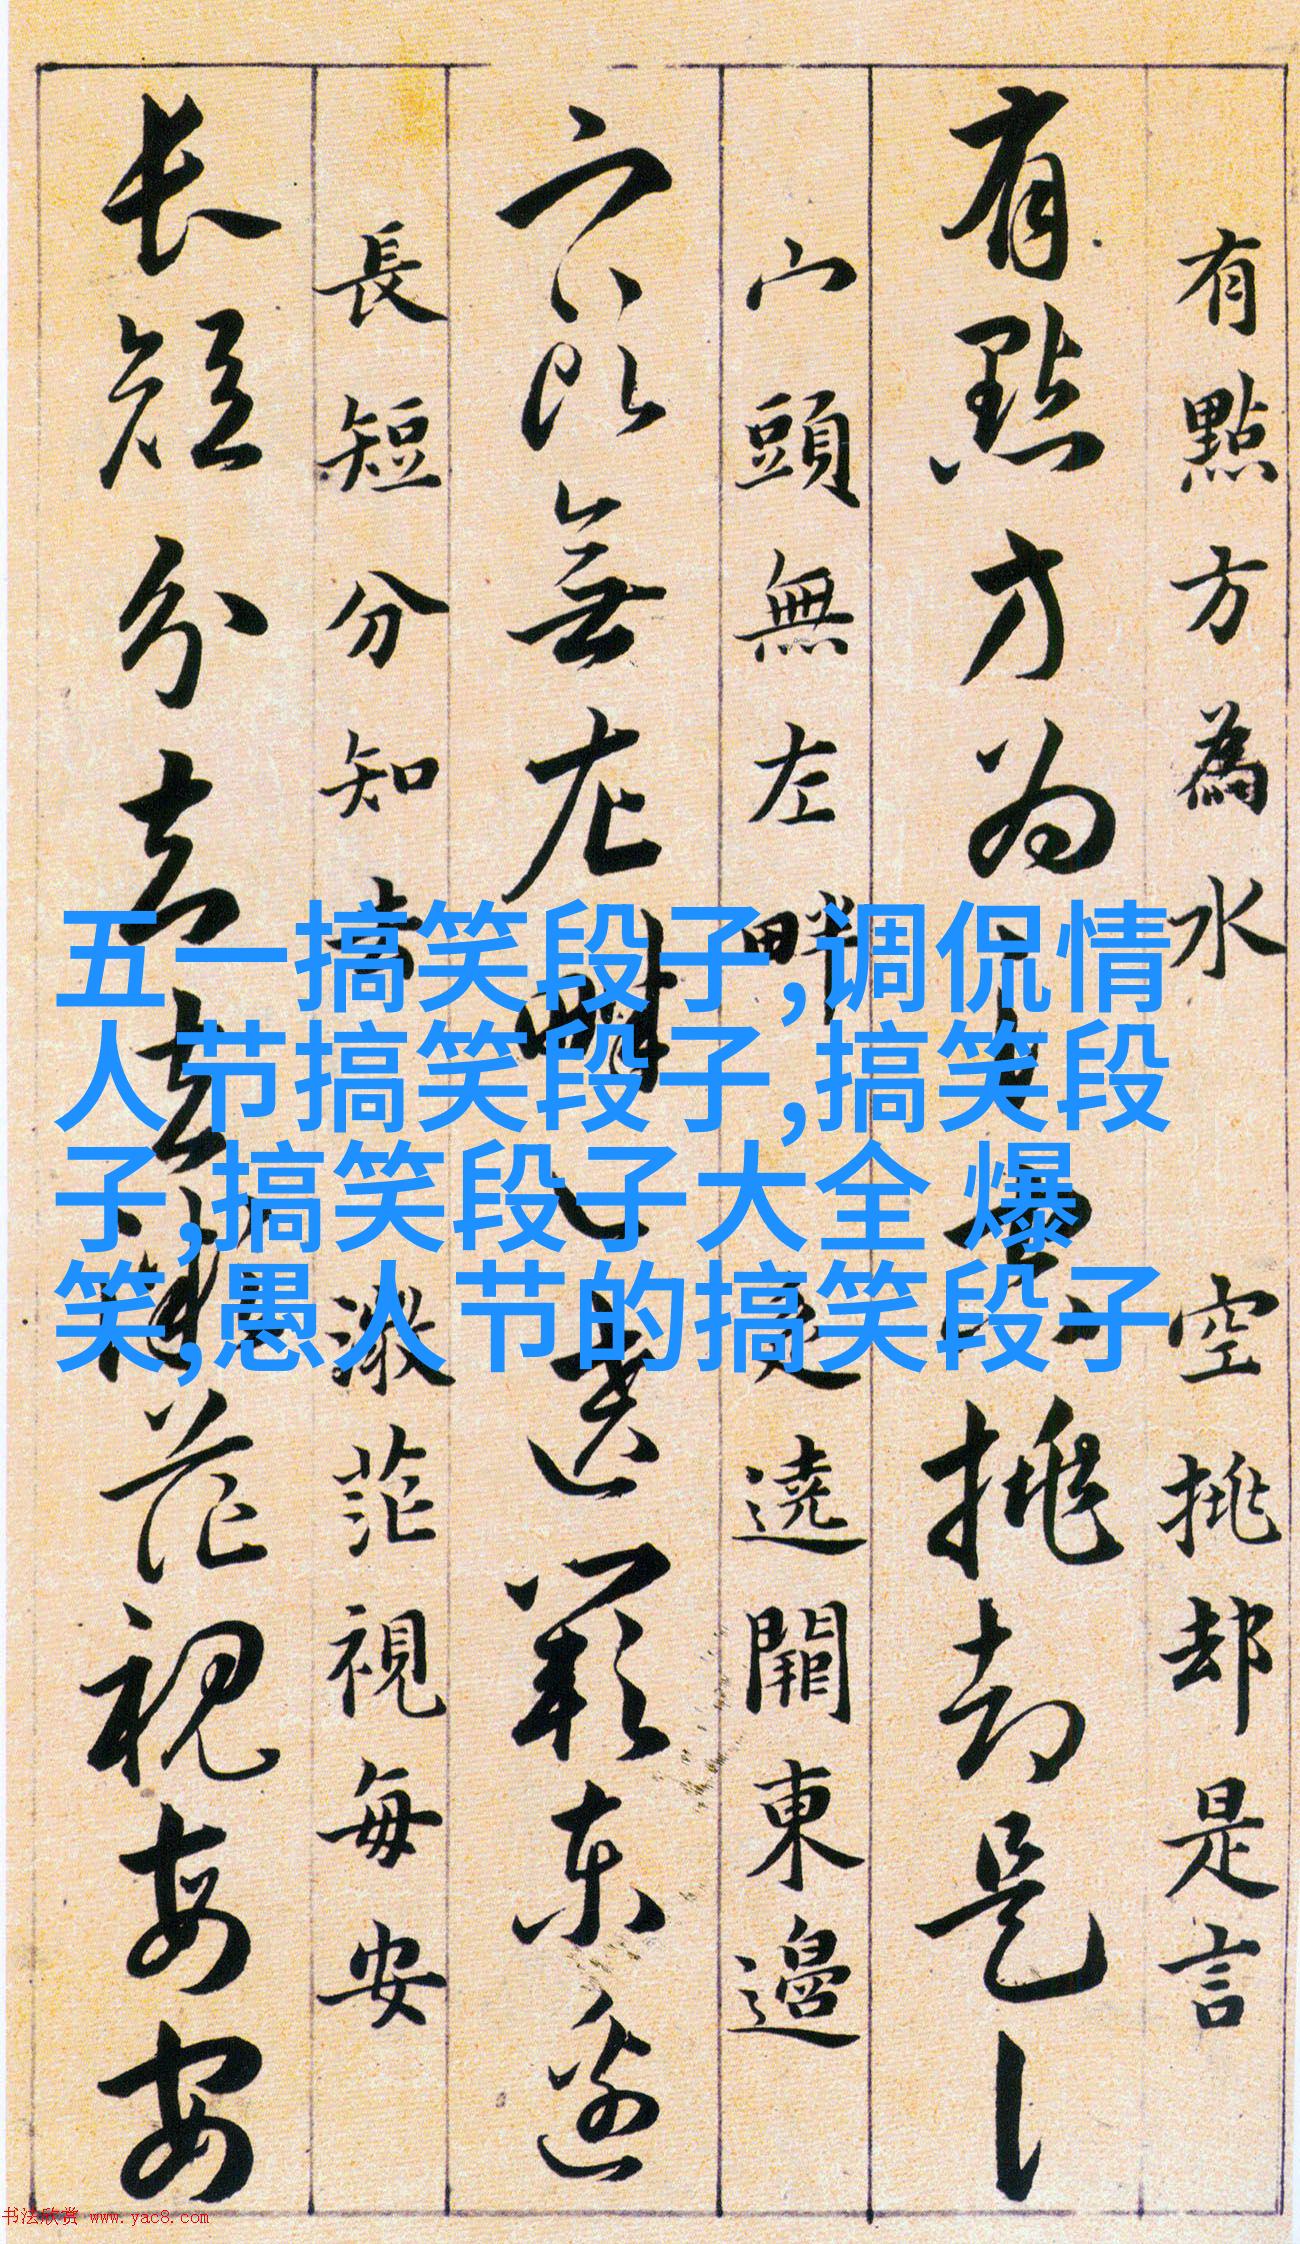 有點方為水
空挑却是言
有點方为
挑却是
宀頭無左畔
遶闢東邊
宀头無左畔
东边
長短分知去
微茫視每安
长短分去去
茫视每安
五一搞笑段子,调侃情
人节搞笑段子,搞笑段
子,搞笑段子大全 爆
笑,愚人节的搞笑段子
书法欣赏 www.yac8.com